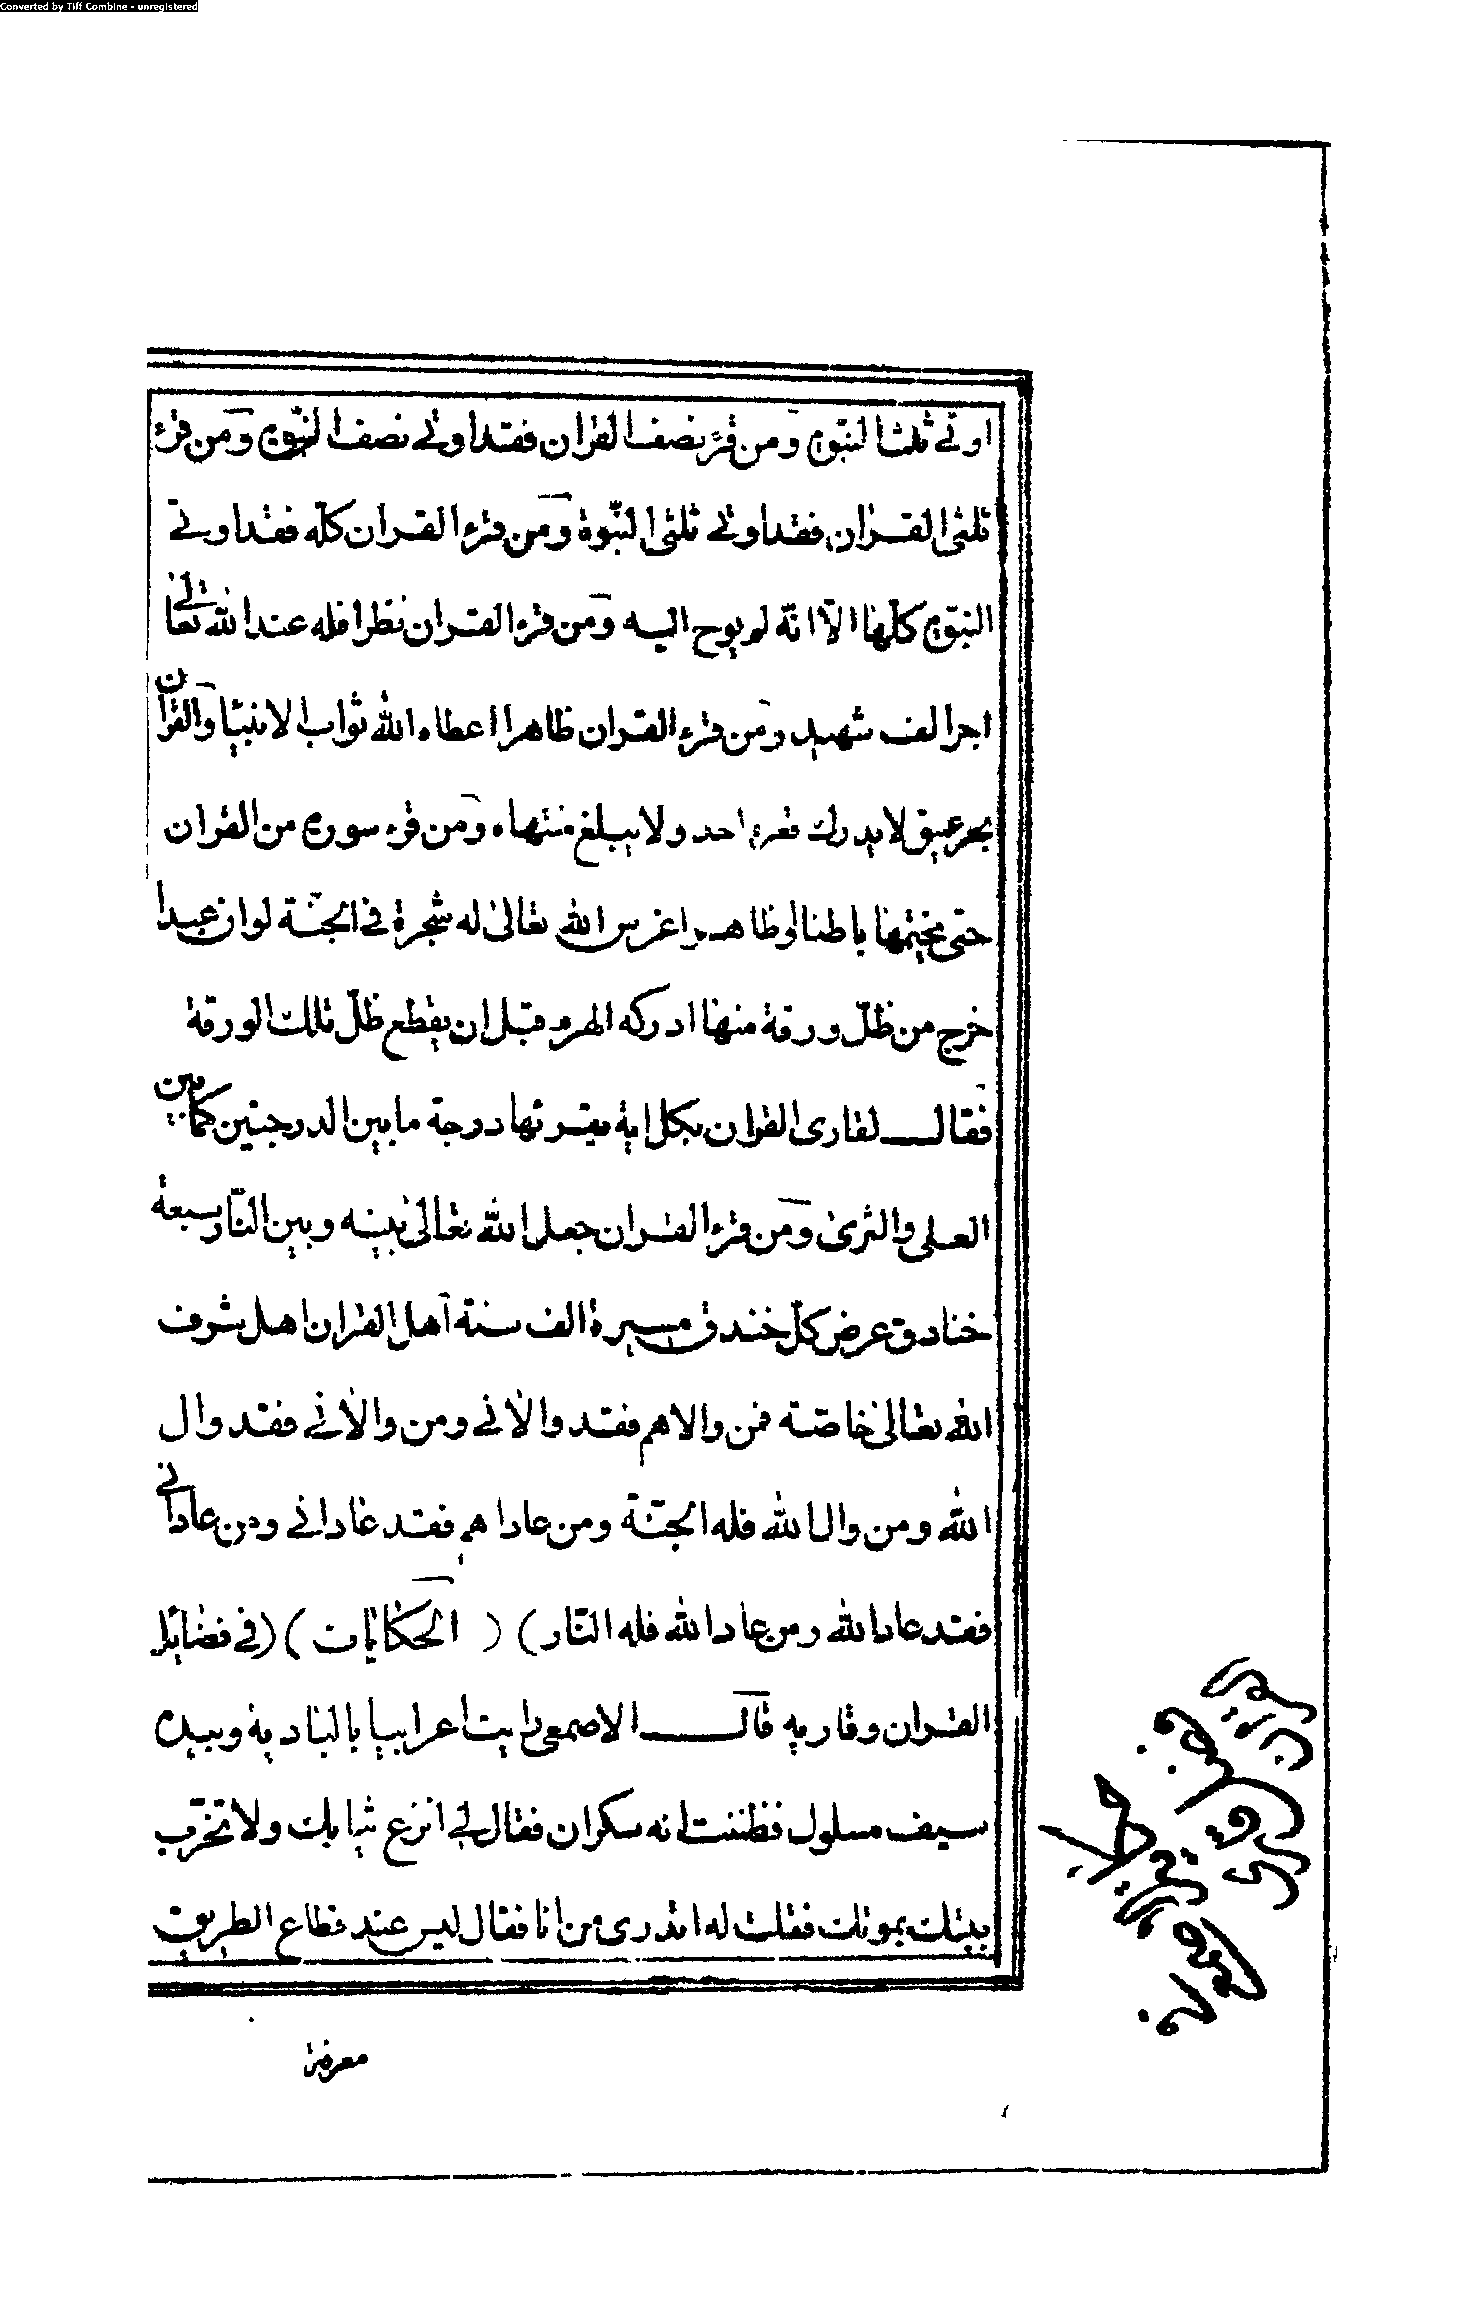 Converted by Tiff Combine - unregistered
اوتى ثلث النبوة ومن قرء نصف القران فقد اوتى نصف النبوة ومن قرء
ثلثى القران فقد اوتى ثلثى النبّوة ومن قرء القران كلّه فقد اوتى
النبوة كلّها الّا انّه لم يوح اليه ومن قرء القران نظرا فله عند الله تعالى
اجر الف شهيد ومن قرء القران ظاهرا اعطاه الله ثواب الانبيا والقران
بحر عميق لا يدرك قعره احد ولا يبلغ منتهاه ومن قرء سورة من القران
حتى يختمها باطنا او ظاهرا غرس الله تعالى له شجرة في الجنّة لو ان عبدا
خرج من ظلّ ورقة منها ادركه الهرم قبل ان يقطع ظلّ تلك الورقة
فقال لقارى القران بكل اية يقرئها درجة ما بين الدرجتين كما بين
العلى والثرى ومن قرء القران جعل الله تعالى بينه وبين النّار سبعة
خنادق عرض كلّ خندق مسيرة الف سنة اهل القران اهل شرف
الله تعالى خاصّة فمن والاهم فقد والانى ومن والانى فقد وال
الله ومن وال الله فله الجنّة ومن عاداهم فقد عادانى ومن عادانى
فقد عاد الله ومن عاد الله فله النّار) ( الحكايات ) (فى فضائل
القران وقاريه قال الاصمعى رايت اعرابيا بالبادية وبيده
سيف مسلول فظننت انه سكران فقال لى انزع ثيابك ولا تخرّب
بيتك بموتك فقلت له اتدرى من انا فقال ليس عند قطاع الطريق
معرفة